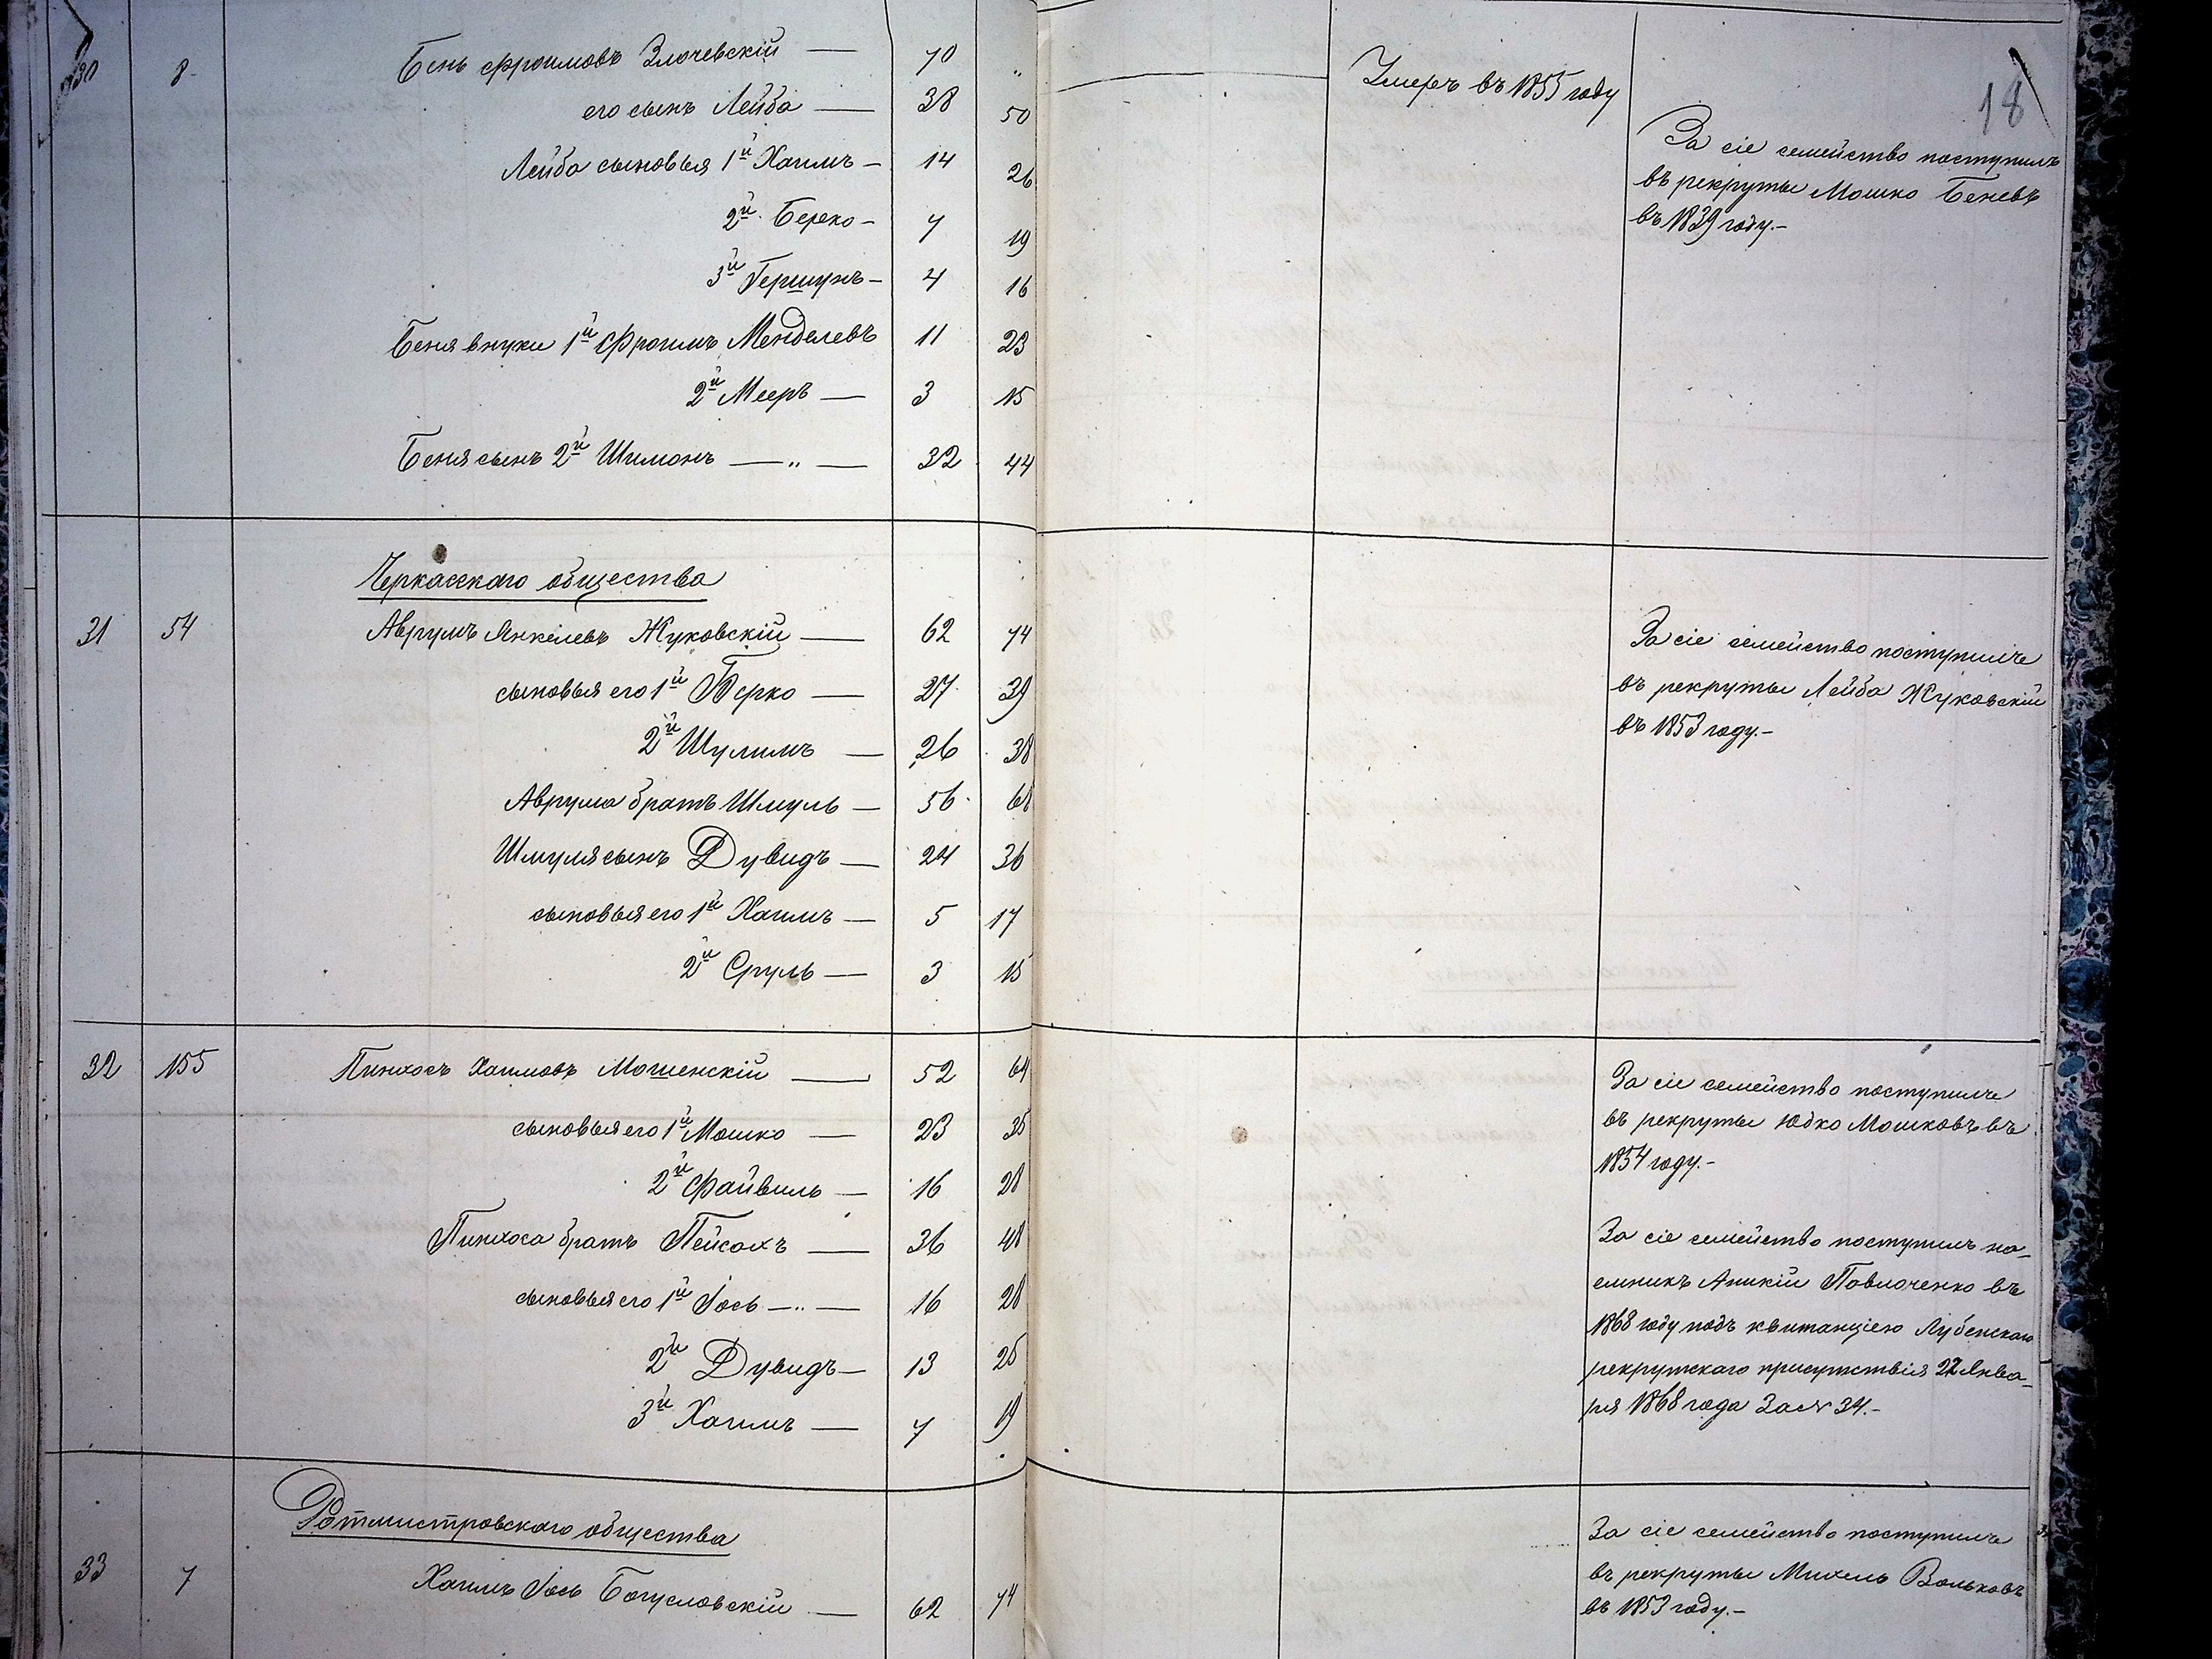 30 8 Бень Фроимовъ Злочевскій — 70 „ Умеръ въ 1855 году
18
его сынъ Лейба — 38 50
Лейба сыновья 1й Хаимъ — 14 26
2й Берко — 7 19
3й Гершунъ — 4 16
Беня внуки 1й Фроимъ Менделевъ 11 23
2й Мееръ — 3 15
Беня сынъ 2й Шимонъ — „ — 32 44
За сіе семейство поступилъ
въ рекруты Мошко Беневъ
въ 1839 году.-
Черкасскаго общества
31 54 Аврумъ Янкелевъ Жуковскій — 62 74
сыновья его 1й Берко — 27 39
2й Шулимъ — 26 38
Аврума братъ Шмуль — 56 68
Шмуля сынъ Дувидъ — 24 36
сыновья его 1й Хаимъ — 5 17
2й Сруль — 3 15
За сіе семейство поступилъ
въ рекруты Лейба Жуковскій
въ 1853 году.-
32 155 Пинхосъ Хаимовъ Мошенскій — 52 64
сыновья его 1й Мошко — 23 35
2й Файвиль — 16 28
Пинхоса братъ Пейсахъ — 36 48
сыновья его 1й Іось — „ — 16 28
2й Дувидъ — 13 25
3й Хаимъ — 7 19
За сіе семейство поступилъ
въ рекруты Юдко Мошковъ въ
1854 году.-
За сіе семейство поступилъ на-
емникъ Аникій Павлоченко въ
1868 году подъ квитанціею Лубенскаго
рекрутскаго присутствія 22 Янва-
ря 1868 года За № 34.-
Ротмистровскаго общества
33 7 Хаимъ Іось Богуславскій — 62 74
За сіе семейство поступилъ
въ рекруты Михель Вольковъ
въ 1853 году.-